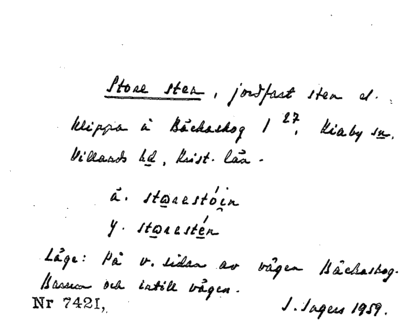 Store sten, jordfast sten el.
klippa å Bäckaskog 1 27, Kiaby sn.
Villands hd, Krist. län.
ä. störestóin
y. störestén
Läge: På v. sidan av vägen Bäckaskog-
Barum och intill vägen.
Nr 7421, I. Ingers 1959.